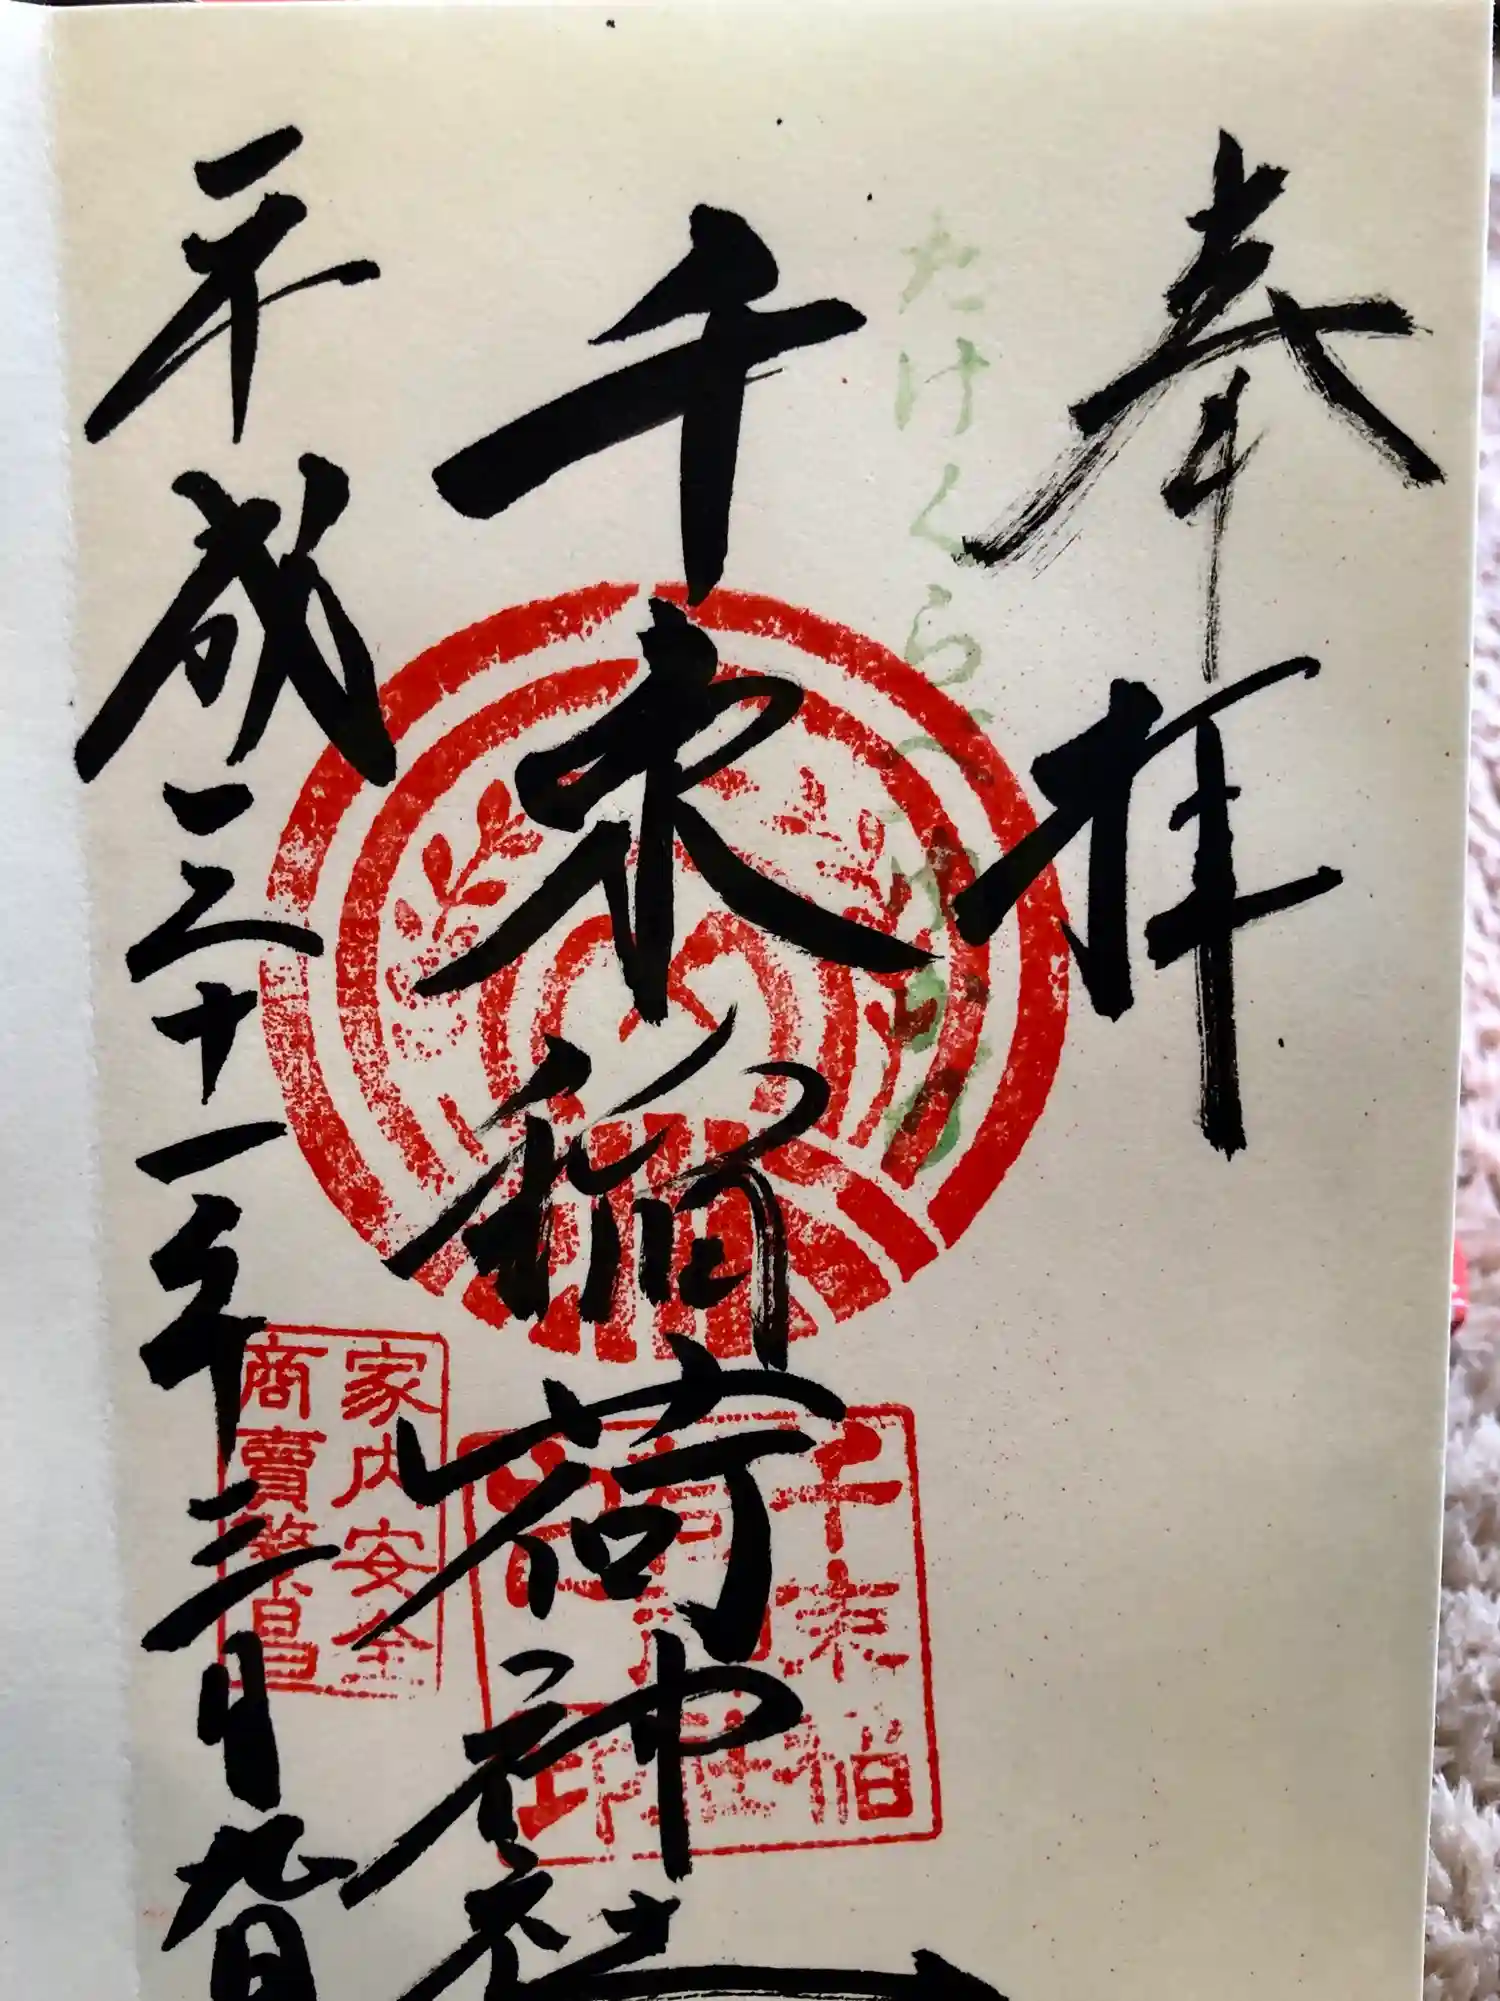 奉拝
たけくらべ
千束稲荷神社
平成三十一年三月九日
千束稲
荷神社
印
家内安全
商賣繁昌